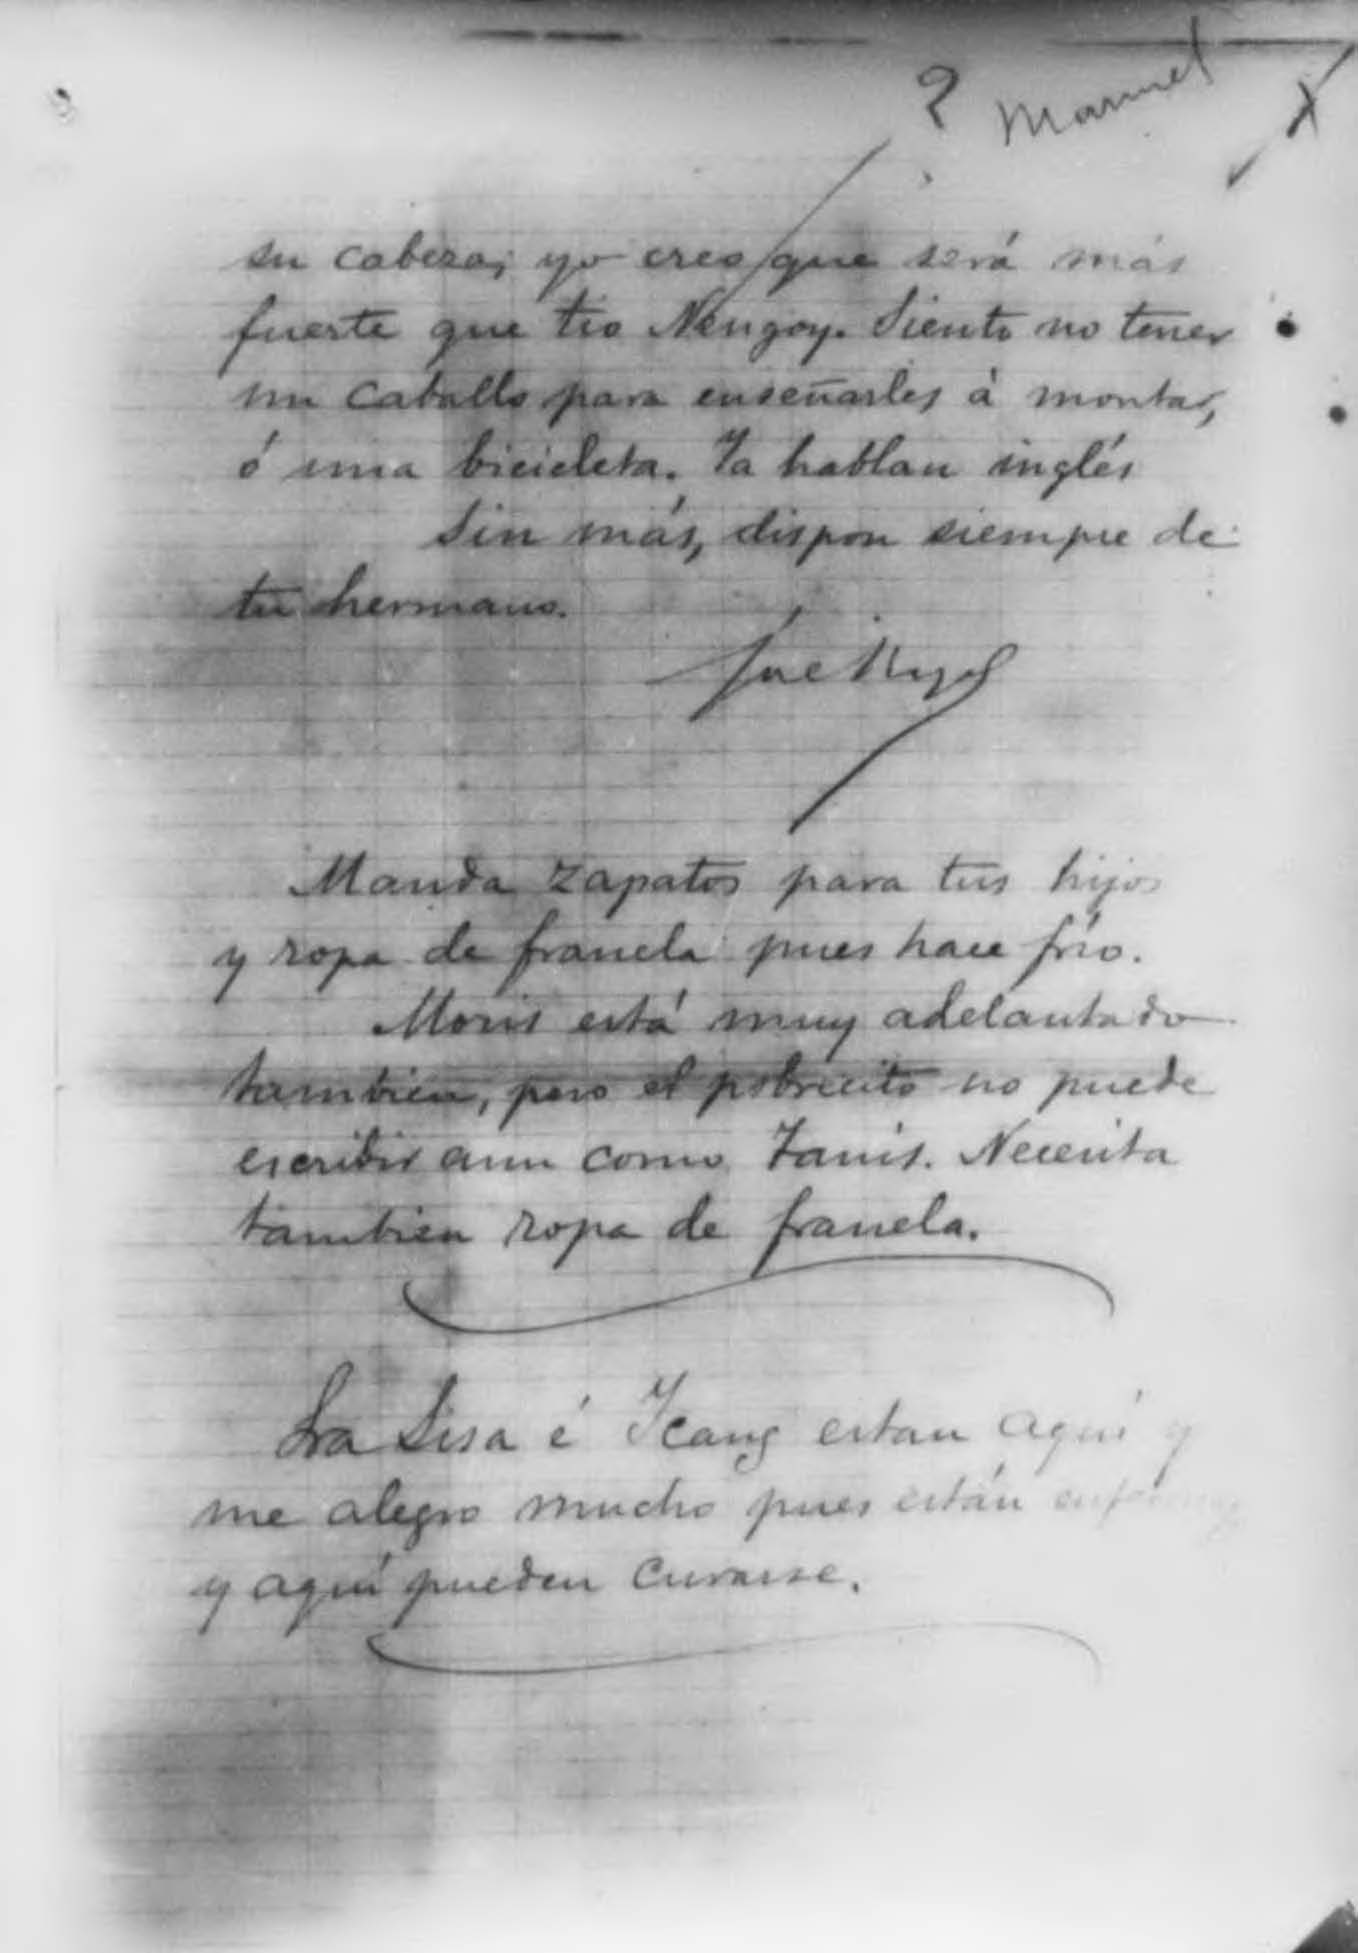 ? Manuel
su cabeza; yo creo que será más
fuerte que tio Nengoy. Siento no tener
un caballo para enseñarles á montar,
ó una bicicleta. Ya hablan inglés
Sin más, dispon siempre de
tu hermano.
José Rizal
Manda zapatos para tus hijos
y ropa de franela pues hace frío.
Moris está muy adelantado
tambien, pero el pobrecito no puede
escribir aun como Tanis. Necesita
tambien ropa de franela.
Sra Sisa é Icang estan aquí y
me alegro mucho pues están
y aquí pueden curarse.